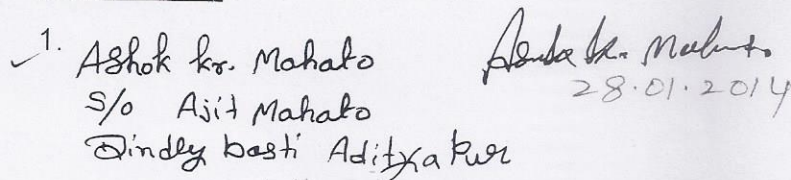 1. Ashok kr. Mahato
S/o Ajit Mahato
Dindly basti Adityapur
Ashok kr. Mahato
28.01.2014